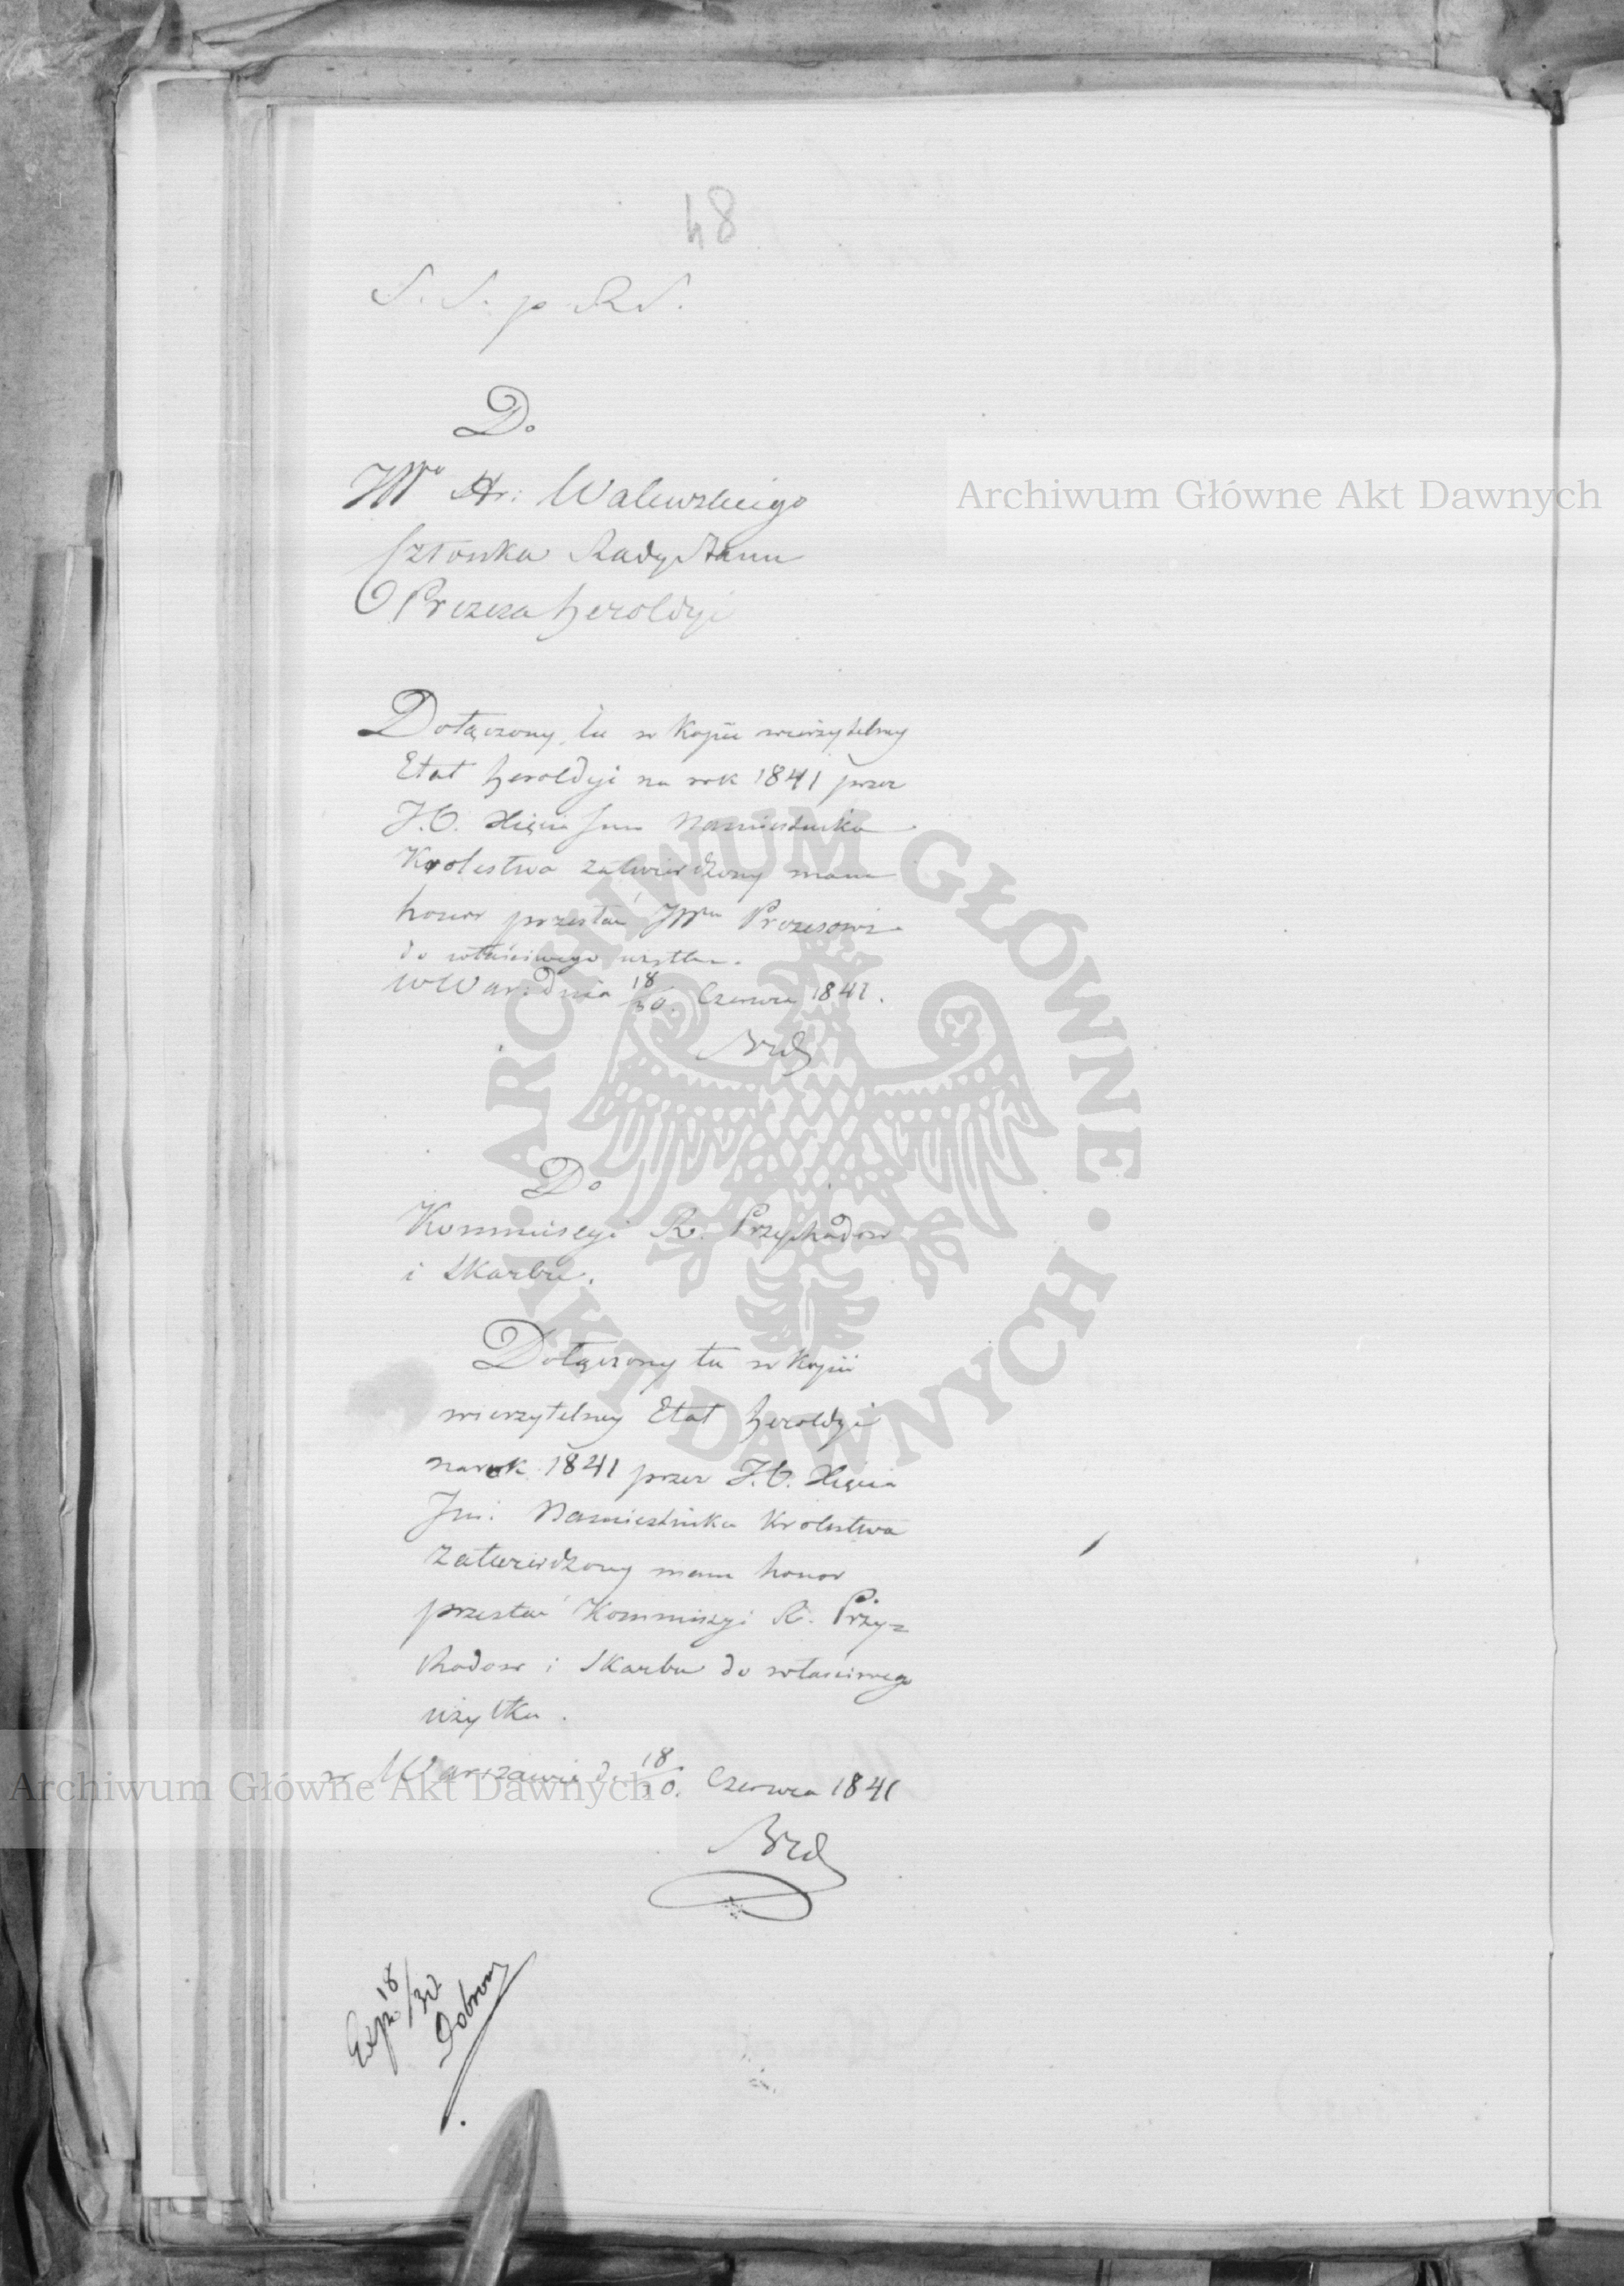 48
S. S. p. R. S.
Do
JWo Hr: Walewskiego
Członka Rady Stanu
Prezesa Heroldyi
Dołączony tu w Kopii wierzytelney
Etat Heroldyi na rok 1841 przez
J.O. Xięcia Jmci Namiestnika
Krolestwa zatwierdzony mam
honor przesłać JWmu Prezesowi
do właściwego użytku.
w War: dnia 18/30. Czerwca 1841.
Do
Kommissyi R. Przychodow
i Skarbu.
Dołączony tu w Kopii
wierzytelney Etat Heroldyi
na rok 1841 przez J.O. Xięcia
Jmi: Namiestnika Krolestwa
zatwierdzony mam honor
przesłać Kommissyi R. Przy=
chodow i Skarbu do właściwego
użytku.
w Warszawie d. 18/30. Czerwca 1841
Exp. 18/30
Archiwum Główne Akt Dawnych
Archiwum Główne Akt Dawnych
ARCHIWUM GŁÓWNE • AKT DAWNYCH •